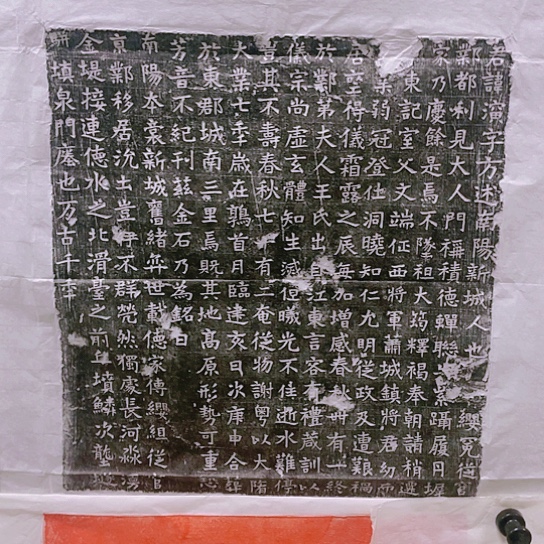 君諱演字方述南陽新城人也纓冕
鄴都利見大人門稱積德蟬聯紫蹋履丹墀
家乃慶餘是焉不墜祖大筠釋褐奉朝請稍遷
東記室父文端征西將軍蕭城鎮將君幼而
弱冠登仕洞曉知仁尤明從政及遭艱禍
居室得儀霜露之辰每加增感春秋卅有一終
於鄴第夫人王氏出自江東言容有禮箴訓以
儀宗尚虛玄體知生滅但曦光不佳逝水難停
其不壽春秋七十有二奄從物謝粵以大隋
大業七年歲在鶉首月臨建亥日次庚申合
於東郡城南三里焉既其地高原形勢可重
芳音不紀刊茲金石乃為銘曰
南陽本袁新城舊緒弈世載德家傳纓組從官
京鄴移居沇出豈伊不群煢然獨處長河淼漫
金堤接連德水之北滑臺之前丘墳鱗次壟
填泉門塵也万古千年